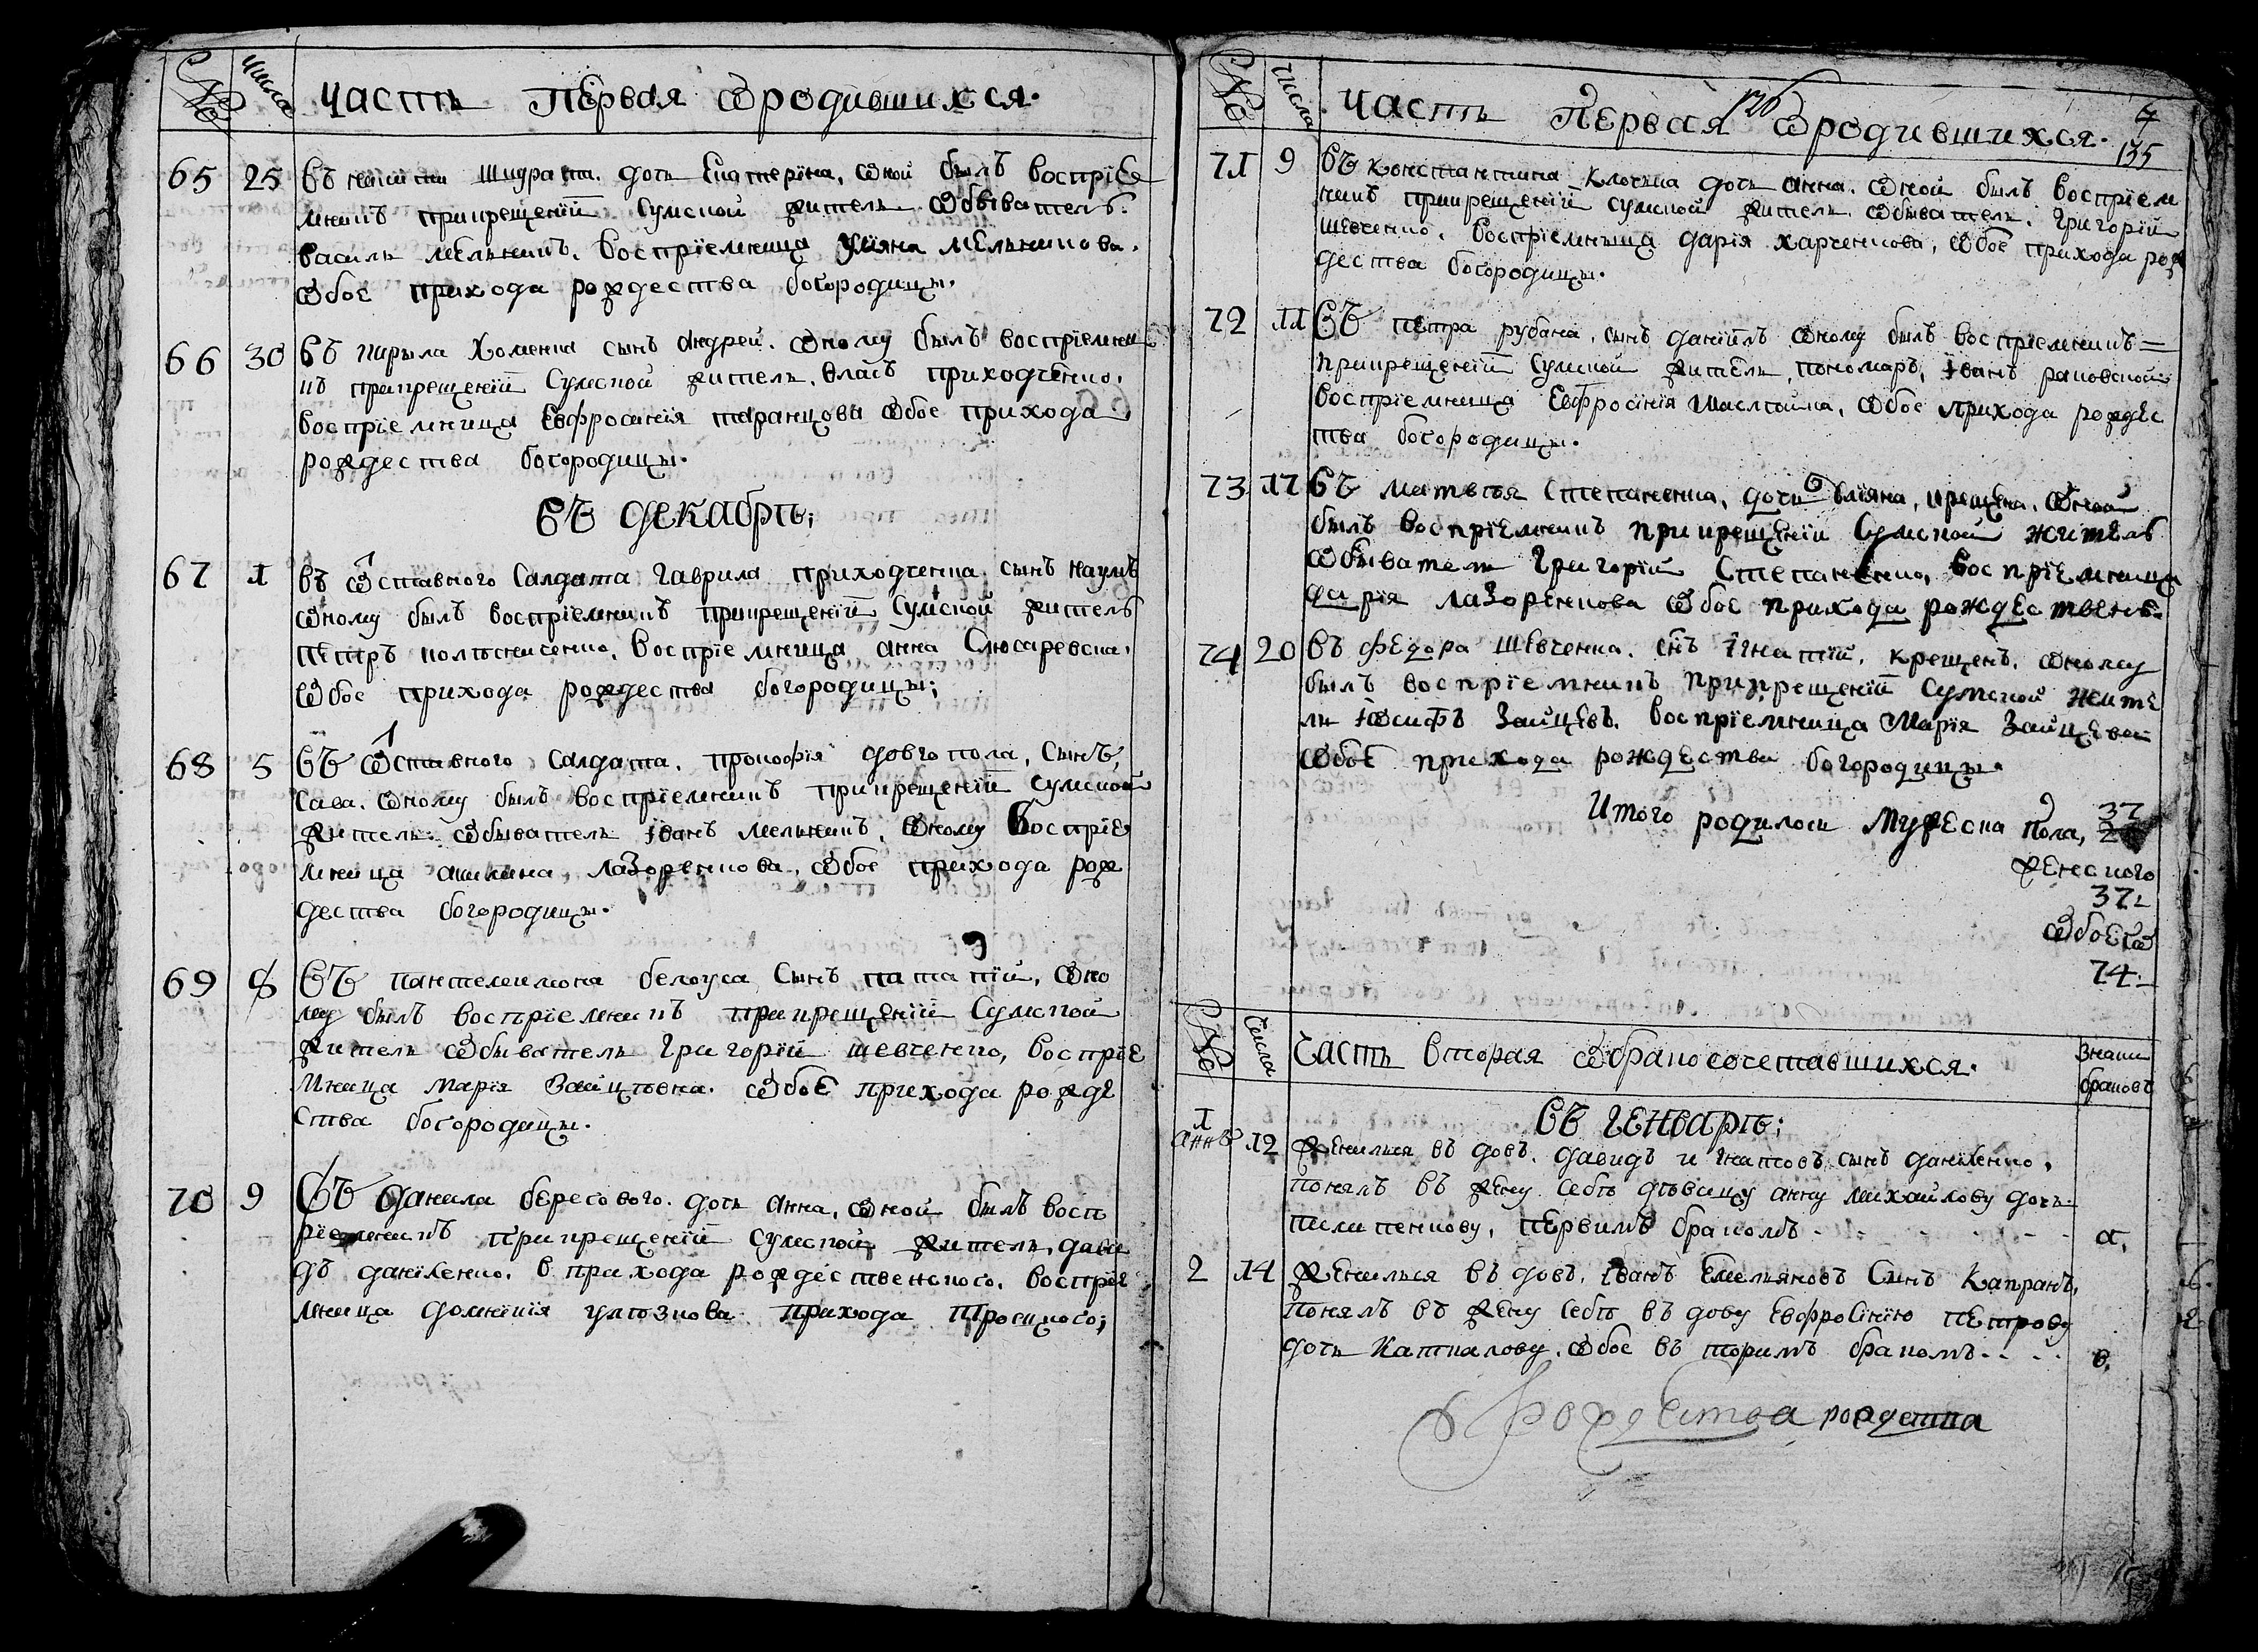 № числа Часть Первая ѡ родившихся.
65 25 въ никити шидрата. дочь Екатерїна, ѡной былъ воспрїе
мникъ прикрещенїй сумской житель ѡбыватель
василь мельникъ. воспрїемница Улїяна мельникова.
ѡбое прихода рождества богородицы.
66 30 въ кирыла хоменка сынъ андрей. ѡному былъ воспрїемни
къ прикрещенїй Сумской житель. власъ приходченко.
воспрїемница Евфросинїя таранцова ѡбое прихода
рождества богородицы.
въ декабрѣ;
67 1 въ ѿставного Салдата гаврила приходченка сынъ наумъ
ѡному былъ воспрїемникъ прикрещенїй Сумской житель
петръ колѣсниченко. воспрїемница анна Слюсаревска.
ѡбое прихода рождества богородицы;
68 5 въ ѿставного Салдата. прокофїя довгопола, Сынъ,
Сава. ѡному былъ воспрїемникъ прикрещенїй сумской
житель. ѡбыватель їванъ мельникъ, ѡному воспрїе
мница акилина, лазоренкова, ѡбое прихода рож
дества богородицы.
69 8 въ пантелеимона белоуса Сынъ, патапїй, ѡно
му былъ воспрїемникъ прикрещенїй Сумской
житель ѡбыватель григорїй шевченко, воспрїе
мница марїя Зайцѣвна. ѡбое прихода рожде
ства богородицы.
70 9 въ данила бересового. дочь анна, ѡной былъ восп
рїемникъ прикрещенїй сумской житель, дави
дъ данїленко. в прихода рождественского. воспрїе
мница домнїкїя гулозкова прихода Троицкого;
126 7
№ числа Часть Первая ѡ родившихся. 135
71 9 въ константина клочка дочь анна. ѡной былъ воспрїем
никъ прикрещенїй сумской житель. ѡбыватель. григорїй
шевченко. воспрїемница дарїя харченкова, ѡбое прихода рож
дества богородицы.
72 11 въ петра рубана, сынъ данїилъ ѡному былъ воспрїемникъ
прикрещенїй Сумской житель, пономаръ, їванъ раковской
воспрїемница Евфросїнїя, ѡбое прихода рождес
тва богородицы.
73 17 въ матвѣя Степаненка, дочь улїяна, крещена. ѡной
былъ воспрїемникъ прикрещенїи Сумской житель
ѡбыватель григорїй Степаненко, воспрїемница
дарїя лазоренкова ѡбое прихода рождественс.
74 20 въ федора шевченка. снъ їгнатїй. крещенъ. ѡному
былъ воспрїемникъ прикрещенїй Сумской жите
ль їѡсифъ Зайцевъ. воспрїемница Марїя Зайцева
ѡбое прихода рождества богородицы.
Итого родилось мужеска пола, 37
женского
37
ѡбоего
74
№ Числа Часть вторая ѡ бракосочетавшихся. Знаки браковъ
въ генварѣ;
1 12 женился вдовъ. давидъ игнатовъ сынъ данїленко.
понялъ въ жену себѣ дѣвицу анну михайлову дочь
пилипенкову, первимъ бракомъ - - - а.
2 14 женился вдовъ, їванъ Емельяновъ Сынъ капранъ,
понялъ въ жену себѣ вдову Евфросїнїю петрову
дочь Каткалову. ѡбое вторимъ бракомъ - - в.
рождества рождества